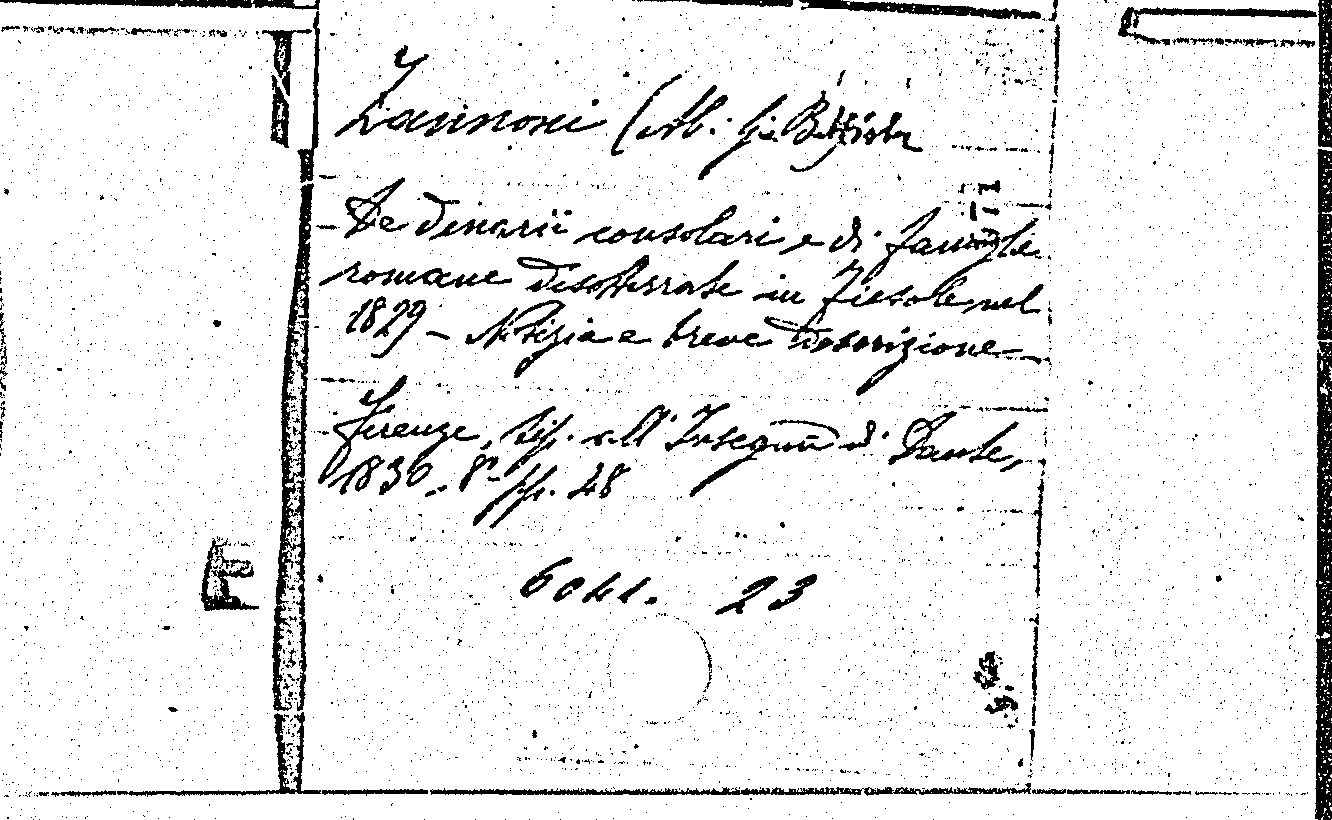 Zannoni (Ab. Gio Battista
De denarii consolari e di famiglie
romane disotterrate in Fiesole nel
1829 – Notizia e breve descrizione
Firenze, tip. all' Insegna di Dante,
1830. 8° pp. 48
6041. 23